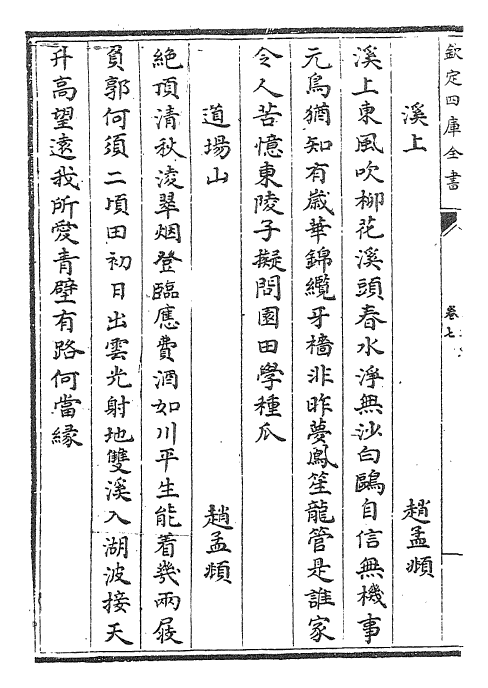 欽定四庫全書
卷七
溪上　趙孟頫
溪上東風吹柳花溪頭春水淨無沙白鷗自信無機事
元鳥猶知有歲華錦纜牙檣非昨夢鳳笙龍管是誰家
令人苦憶東陵子擬問園田學種瓜
道場山　趙孟頫
絶頂清秋凌翠烟登臨應費酒如川平生能着幾兩屐
負郭何須二頃田初日出雲光射地雙溪入湖波接天
升高望遠我所愛青壁有路何當縁